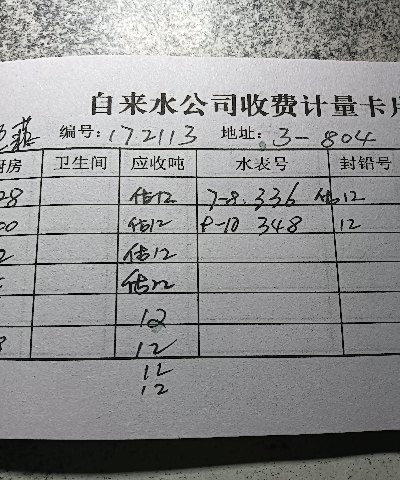 自来水公司收费计量卡片
编号:172113 地址:3-804
厨房 卫生间 应收吨 水表号 封铅号
28 估12 7-8. 336 估12
00 估12 8-10 348 12
2 估12
估12
12
8 12
12
12